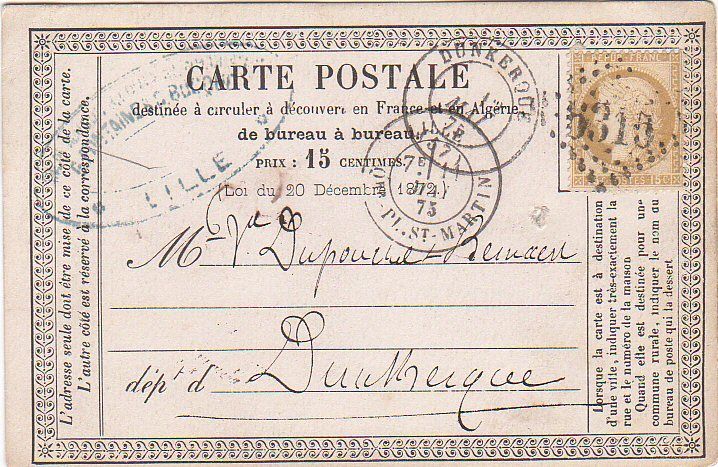 CARTE POSTALE
destinée à circuler à découvert en France et en Algérie
de bureau à bureau.
PRIX : 15 CENTIMES.
(Loi du 20 Décembre 1872.)
LILLE
DUNKERQUE
75
PL. ST-MARTIN
7E
75
5315
POSTES 15C
Mme Ve Dupouche-Remaert
Dunkerque
dépt d
L'adresse seule doit être mise de ce côté de la carte.
L'autre côté est réservé à la correspondance.
Lorsque la carte est à destination
d'une ville, indiquer très-exactement la
rue et le numéro de la maison
Quand elle est destinée pour une
commune rurale, indiquer le nom du
bureau de poste qui la dessert